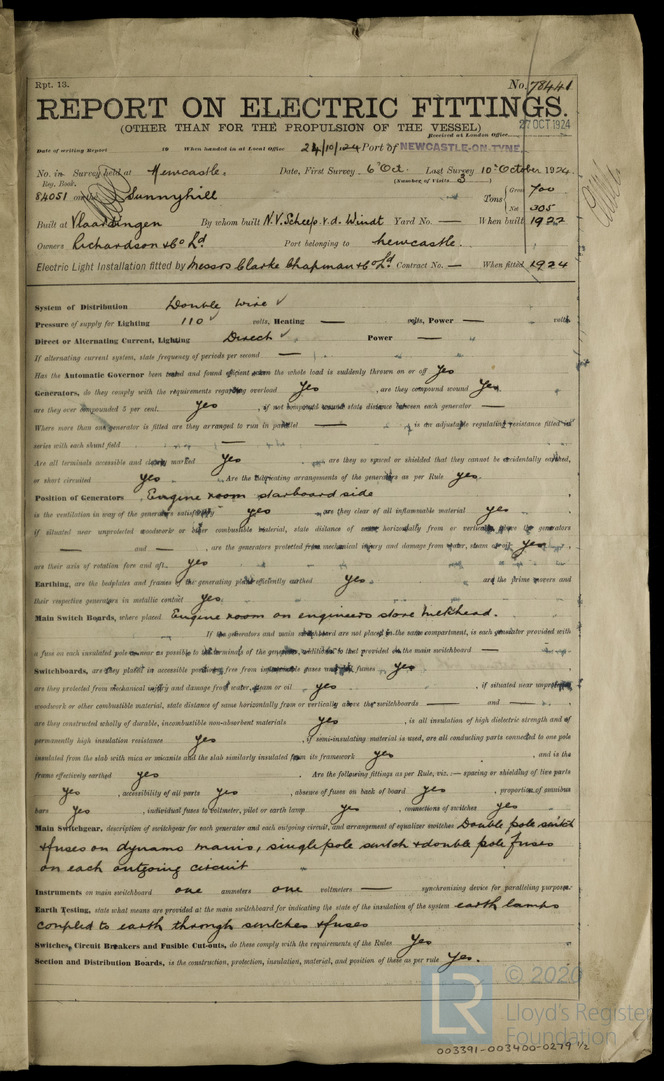 Rpt. 13. No. 78441
REPORT ON ELECTRIC FITTINGS.
(OTHER THAN FOR THE PROPULSION OF THE VESSEL)
Received at London Office 27 OCT 1924
Date of writing Report 19 When handed in at Local Office 24/10/1924 Port of NEWCASTLE-ON-TYNE.
No. in Survey held at Newcastle. Date, First Survey 6th Oct. Last Survey 10th October 1924
Reg. Book. (Number of Visits 3)
84051 on the Sunnyhill Tons Gross 700
Net 305
Built at Vlaardingen By whom built N.V. Scheep. v. d. Windt Yard No. — When built 1922
Owners Richardson & Co Ld Port belonging to Newcastle.
Electric Light Installation fitted by Messrs Clarke Chapman & Co Ld Contract No. — When fitted 1924
System of Distribution Double wire ✓
Pressure of supply for Lighting 110 ✓ volts, Heating — volts, Power — volts.
Direct or Alternating Current, Lighting Direct ✓ Power —
If alternating current system, state frequency of periods per second —
Has the Automatic Governor been tested and found efficient when the whole load is suddenly thrown on or off Yes
Generators, do they comply with the requirements regarding overload Yes, are they compound wound Yes.
are they over compounded 5 per cent. Yes, if not compound wound state distance between each generator —
Where more than one generator is fitted are they arranged to run in parallel —, is an adjustable regulating resistance fitted in
series with each shunt field —
Are all terminals accessible and clearly marked Yes, are they so spaced or shielded that they cannot be accidentally earthed,
or short circuited Yes. Are the lubricating arrangements of the generators as per Rule Yes.
Position of Generators Engine room starboard side
is the ventilation in way of the generators satisfactory yes, are they clear of all inflammable material yes
if situated near unprotected woodwork or other combustible material, state distance of same horizontally from or vertically above the generators
— and —, are the generators protected from mechanical injury and damage from water, steam or oil yes,
are their axis of rotation fore and aft. Yes
Earthing, are the bedplates and frames of the generating plant efficiently earthed Yes. are the prime movers and
their respective generators in metallic contact Yes.
Main Switch Boards, where placed Engine room on engineers store bulkhead.
If the generators and main switchboard are not placed in the same compartment, is each generator provided with
a fuse on each insulated pole as near as possible to the terminals of the generator, additional to that provided on the main switchboard —
Switchboards, are they placed in accessible positions free from inflammable gases and acid fumes Yes
are they protected from mechanical injury and damage from water, steam or oil yes, if situated near unprotected
woodwork or other combustible material, state distance of same horizontally from or vertically above the switchboards — and —
are they constructed wholly of durable, incombustible non-absorbent materials yes, is all insulation of high dielectric strength and of
permanently high insulation resistance yes, if semi-insulating material is used, are all conducting parts connected to one pole
insulated from the slab with mica or micanite and the slab similarly insulated from its framework yes, and is the
frame effectively earthed yes. Are the following fittings as per Rule, viz.:— spacing or shielding of live parts
yes, accessibility of all parts yes, absence of fuses on back of board yes, proportion of omnibus
bars yes, individual fuses to voltmeter, pilot or earth lamp yes, connections of switches yes
Main Switchgear, description of switchgear for each generator and each outgoing circuit, and arrangement of equalizer switches Double pole switch
& fuses on dynamo mains, single pole switch & double pole fuses
on each outgoing circuit
Instruments on main switchboard one ammeters one voltmeters — synchronising device for paralleling purposes.
Earth Testing, state what means are provided at the main switchboard for indicating the state of the insulation of the system earth lamps
coupled to earth through switches & fuses
Switches, Circuit Breakers and Fusible Cut-outs, do these comply with the requirements of the Rules Yes
Section and Distribution Boards, is the construction, protection, insulation, material, and position of these as per rule Yes.
LR © 2020
Lloyd's Register
Foundation
003391-003400-0279 1/2